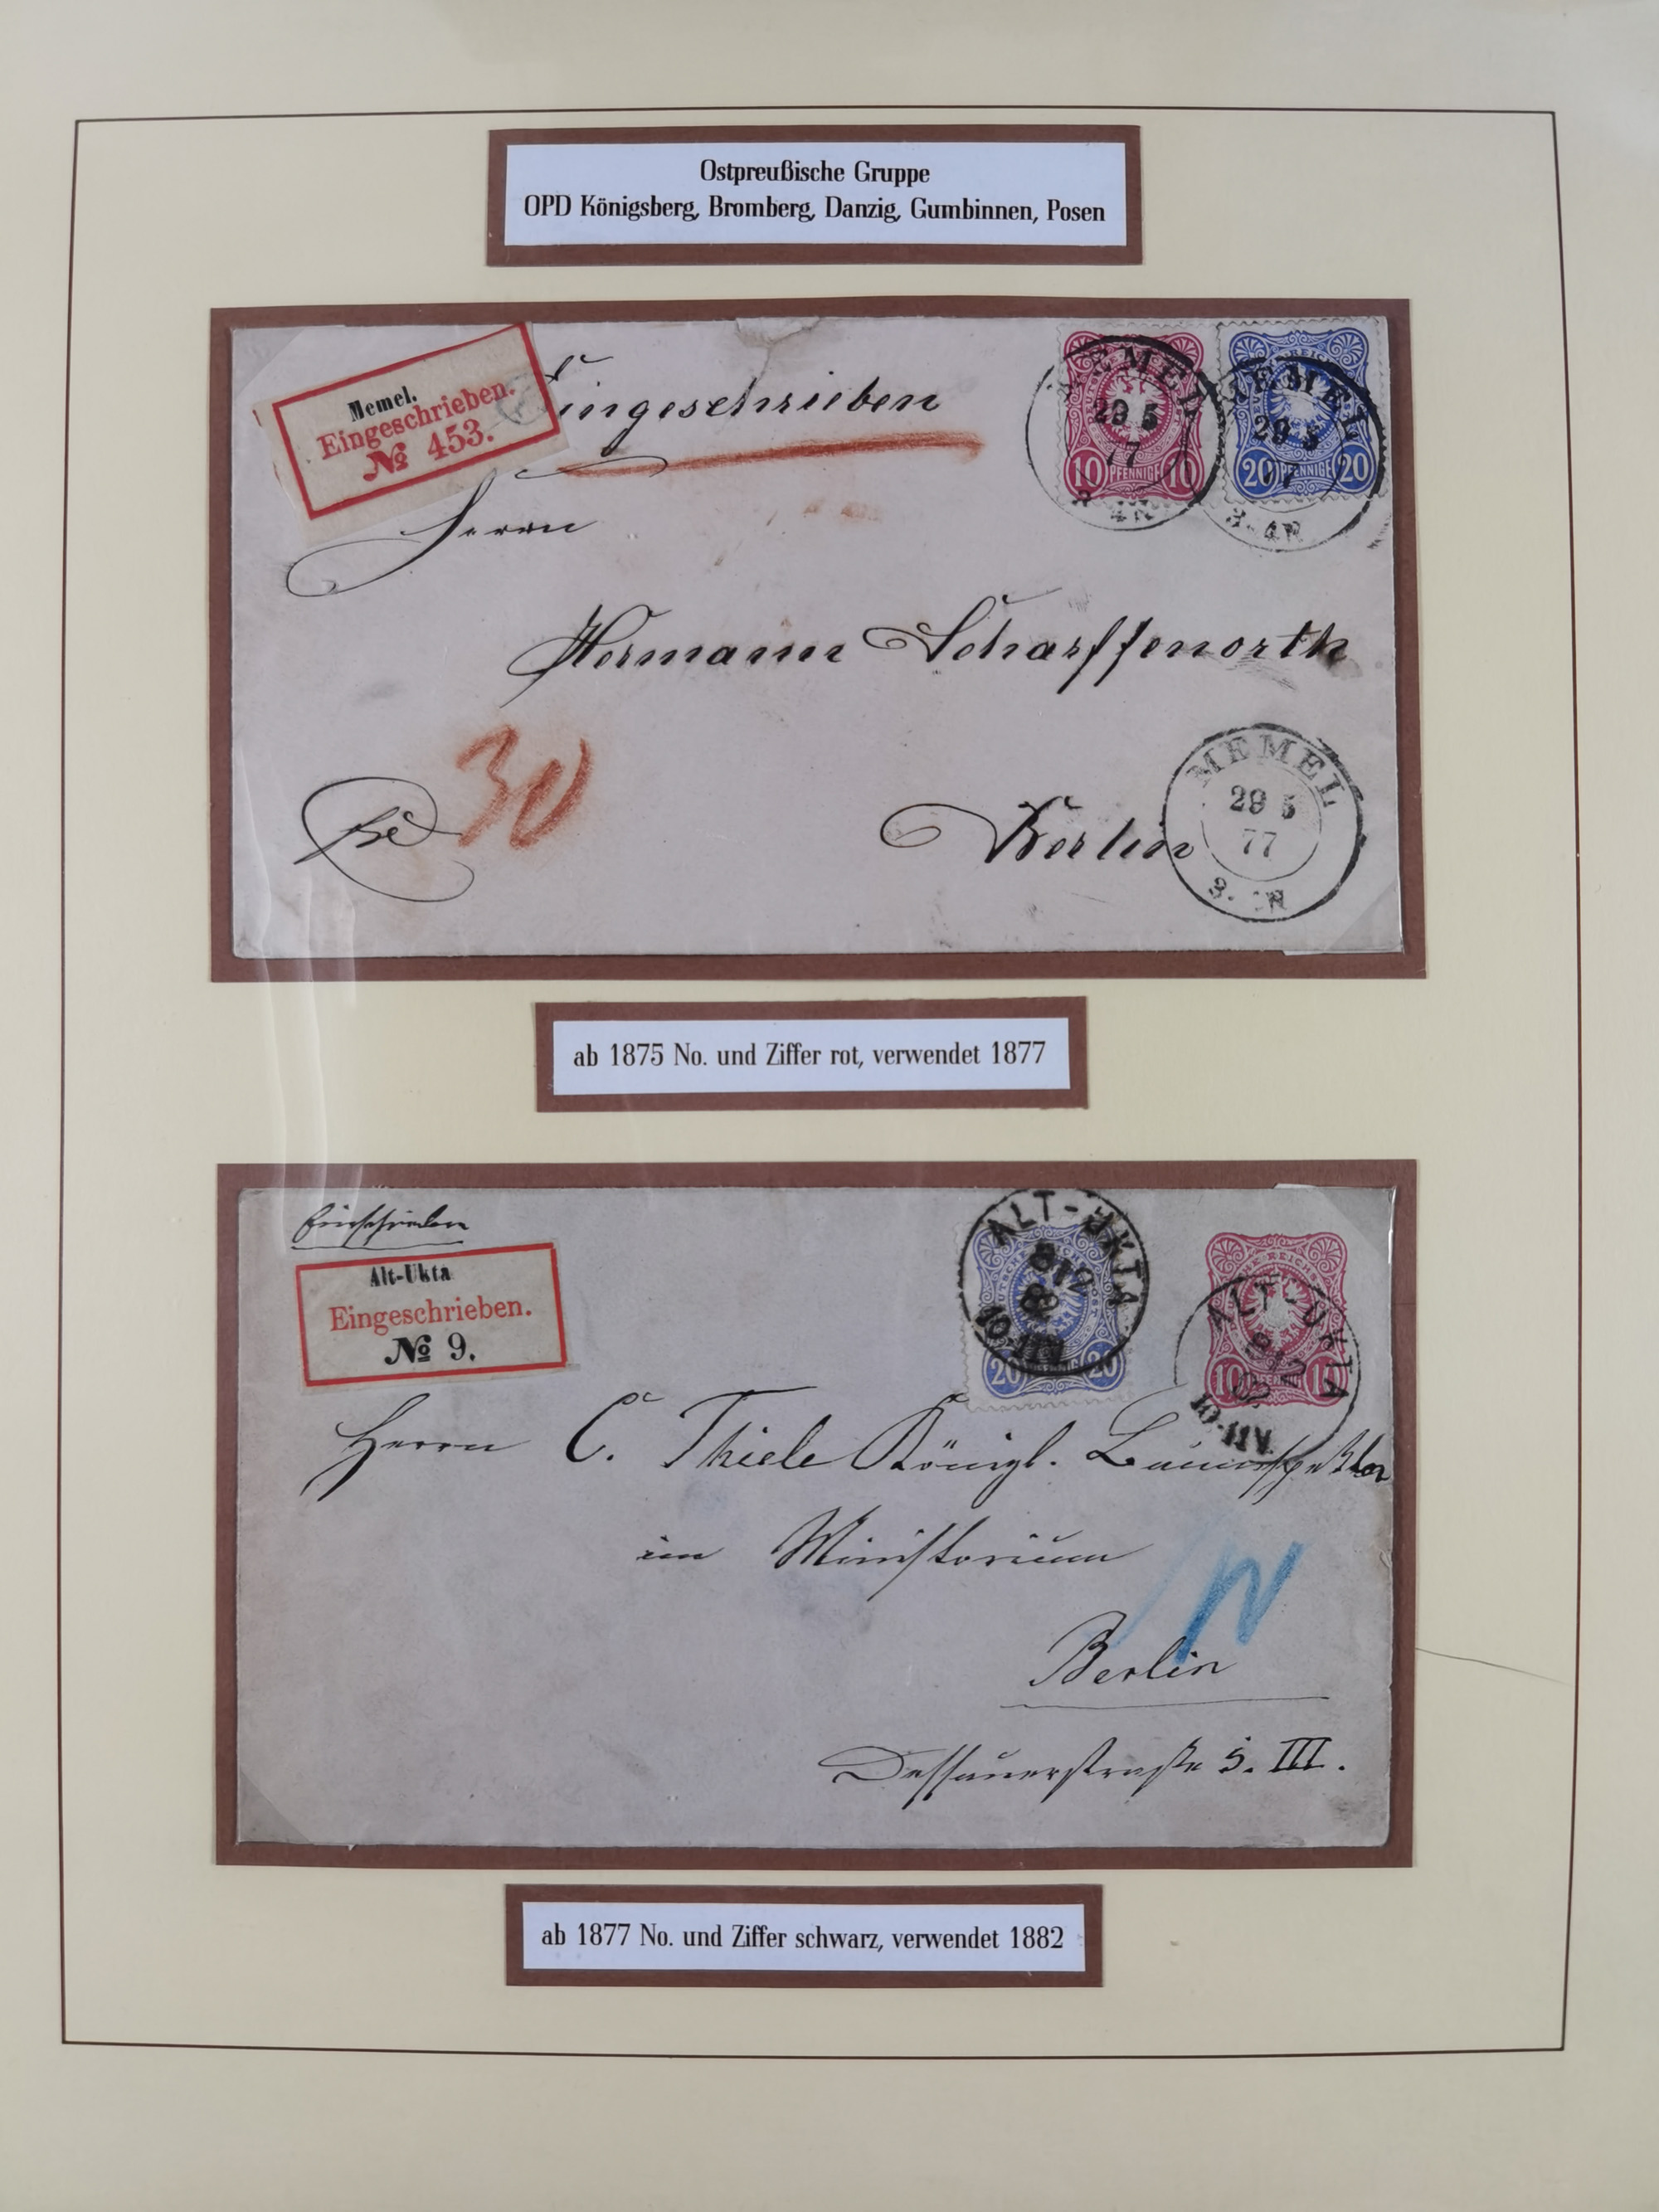 Ostpreußische Gruppe
OPD Königsberg, Bromberg, Danzig, Gumbinnen, Posen
Memel.
Eingeschrieben.
№ 453.
Eingeschrieben
MEMEL
29 5
77
10 PFENNIGE 10
MEMEL
29 5
77
3-4N
20 PFENNIGE 20
Herrn
Hermann Scharffenorth
30
Berlin
MEMEL
29 5
77
ab 1875 No. und Ziffer rot, verwendet 1877
Einschreiben
Alt-Ukta
Eingeschrieben.
№ 9.
ALT-UKTA
8 12
20 PFENNIG 20
ALT-UKTA
8 12
10 PFENNIG 10
Herrn C. Thiele Königl. Bauinspektor
im Ministerium
Berlin
Dessauerstraße 5. III.
ab 1877 No. und Ziffer schwarz, verwendet 1882